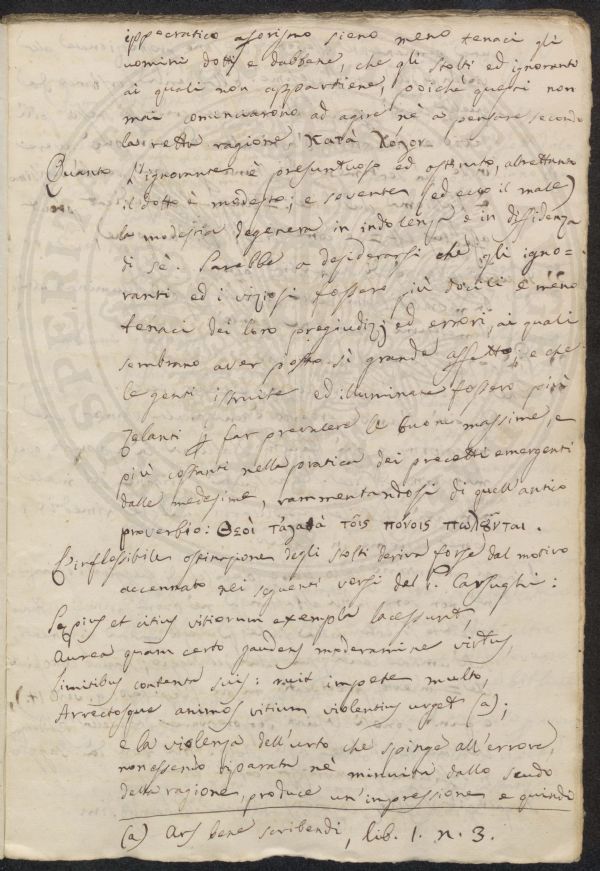 ippocratico aforismo sieno meno tenaci gli
uomini dotti e dabbene, che gli stolti ed ignoranti
ai quali non appartiene, poichè questi non
mai cominciarono ad agire nè a pensare secondo
la retta ragione, κατὰ λόγον.
Quanto l'ignorante è presuntuoso ed ostinato, altrettanto
il dotto è modesto; e sovente (ed ecco il male)
la modestia degenera in indolenza e in diffidenza
di sè. Sarebbe a desiderarsi che gli igno-
ranti ed i viziosi fossero più docili e meno
tenaci dei loro pregiudizj ed errori, ai quali
sembrano aver posto sì grande affetto; e che
le genti istruite ed illuminate fossero più
zelanti per far prevalere le buone massime, e
più costanti nella pratica dei precetti emergenti
dalle medesime, rammentandosi di quell'antico
proverbio: Θεοὶ τἀγαθὰ τοῖς πόνοις πωλοῦνται.
L'inflessibile ostinazione degli stolti deriva forse dal motivo
accennato nei seguenti versi del P. Carsughi:
Sepius et citius vitiorum exempla lacessunt,
Aurea quam certo gaudens moderamine virtus,
Limitibus contenta suis: ruit impete multo,
Arrectosque animos vitium violentius urget (a);
e la violenza dell'urto che spinge all'errore,
non essendo riparata nè minuita dallo scudo
della ragione, produce un'impressione e quindi
(a) Ars bene scribendi, lib. 1. n. 3.